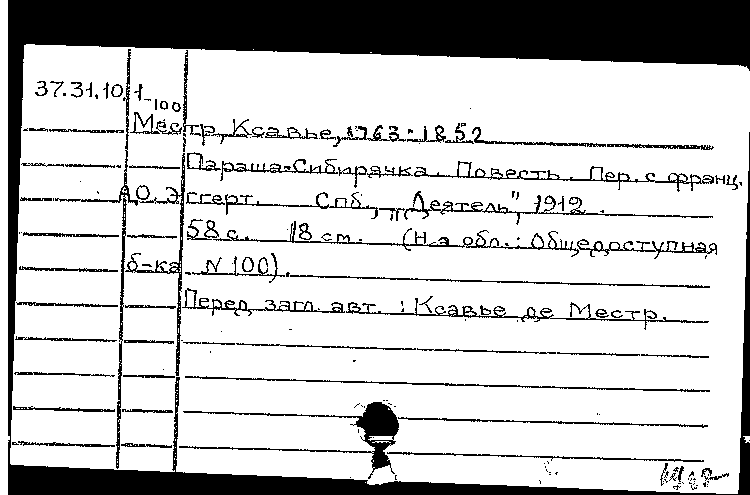 37.31.10.1-100
Местр, Ксавье, 1763-1852
Параша-Сибирячка. Повесть. Пер. с франц.
А.О. Эггерт. Спб., "Деятель", 1912.
58 с. 18 см. (На обл.: Общедоступная
б-ка N 100).
Перед загл. авт.: Ксавье де Местр.